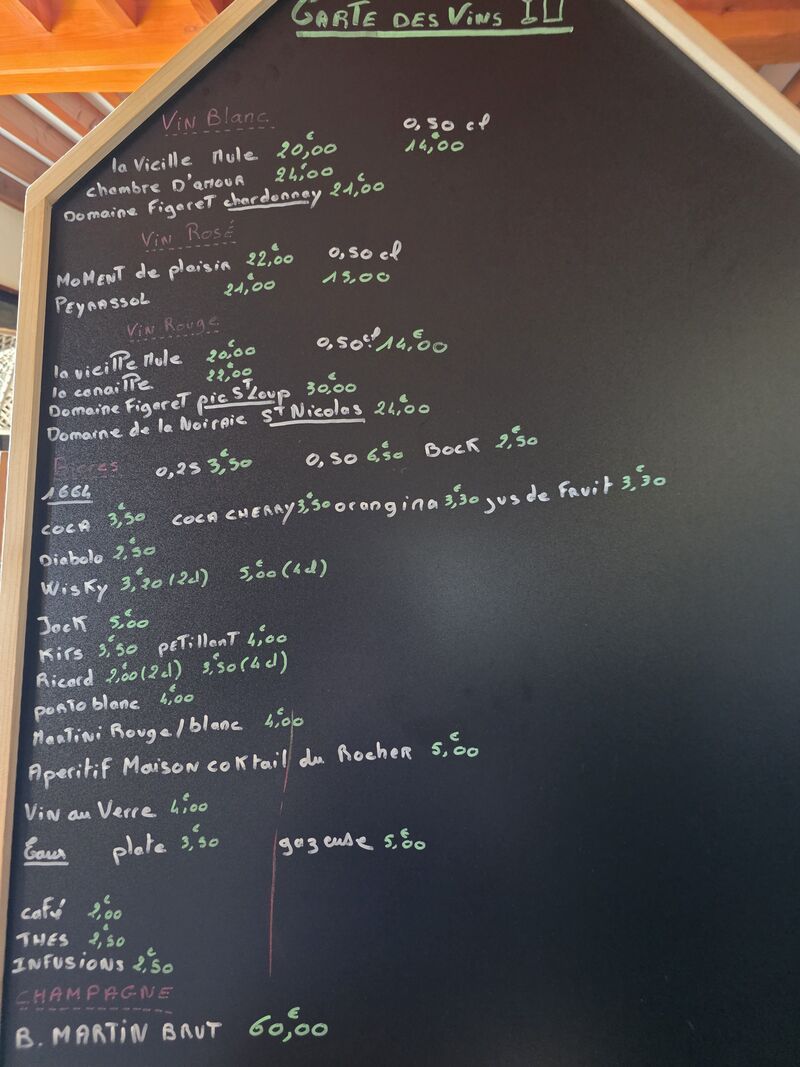 CARTE DES VINS
Vin Blanc 0,50 cl
la Vieille Mule 20,00€ 14,00€
chambre D'AMOUR 24,00€
Domaine Figaret chardonnay 21,00€
Vin Rosé
MOMENT de plaisir 22,00€ 0,50 cl
PEYRASSOL 21,00€ 15,00
Vin Rouge
la vieille Mule 20,00€ 0,50cl 14,00€
la canaille 22,00€
Domaine Figaret pic St Loup 30,00€
Domaine de la Noiraie St Nicolas 24,00€
Bieres 0,25 3,50€ 0,50 6,50€ BOCK 2,50€
1664
COCA 3,50€ COCA CHERRY 3,50€ orangina 3,30€ jus de Fruit 3,30€
Diabolo 2,50€
Wisky 3,20€ (2cl) 5,00€ (4cl)
Jack 5,00€
Kirs 3,50€ PETILLANT 4,00€
Ricard 2,00€ (2cl) 3,50€ (4cl)
PORTO blanc 4,00€
MARTINI Rouge/blanc 4,00€
Aperitif Maison coktail du Rocher 5,00€
Vin au Verre 4,00€
Eaux plate 3,50€ gazeuse 5,00€
café 2,00€
THES 2,50€
INFUSIONS 2,50€
CHAMPAGNE
B. MARTIN BRUT 60,00€